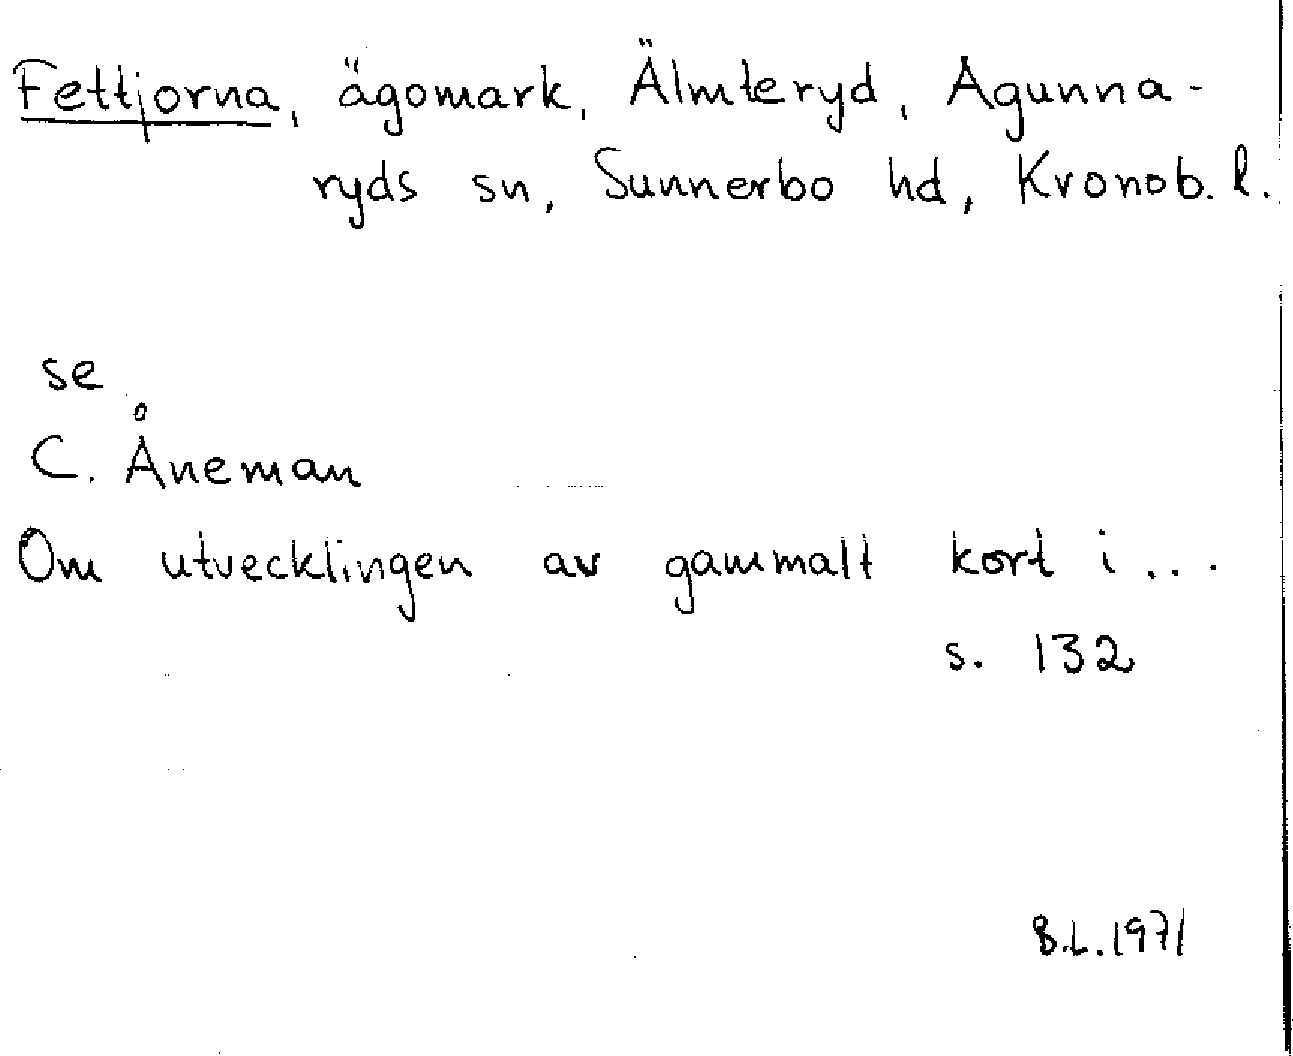 Fettjorna, ägomark, Älmteryd, Agunna-
ryds sn, Sunnerbo hd, Kronob. l.
se
C. Åneman
Om utvecklingen av gammalt kort i...
s. 132
B.L. 1971